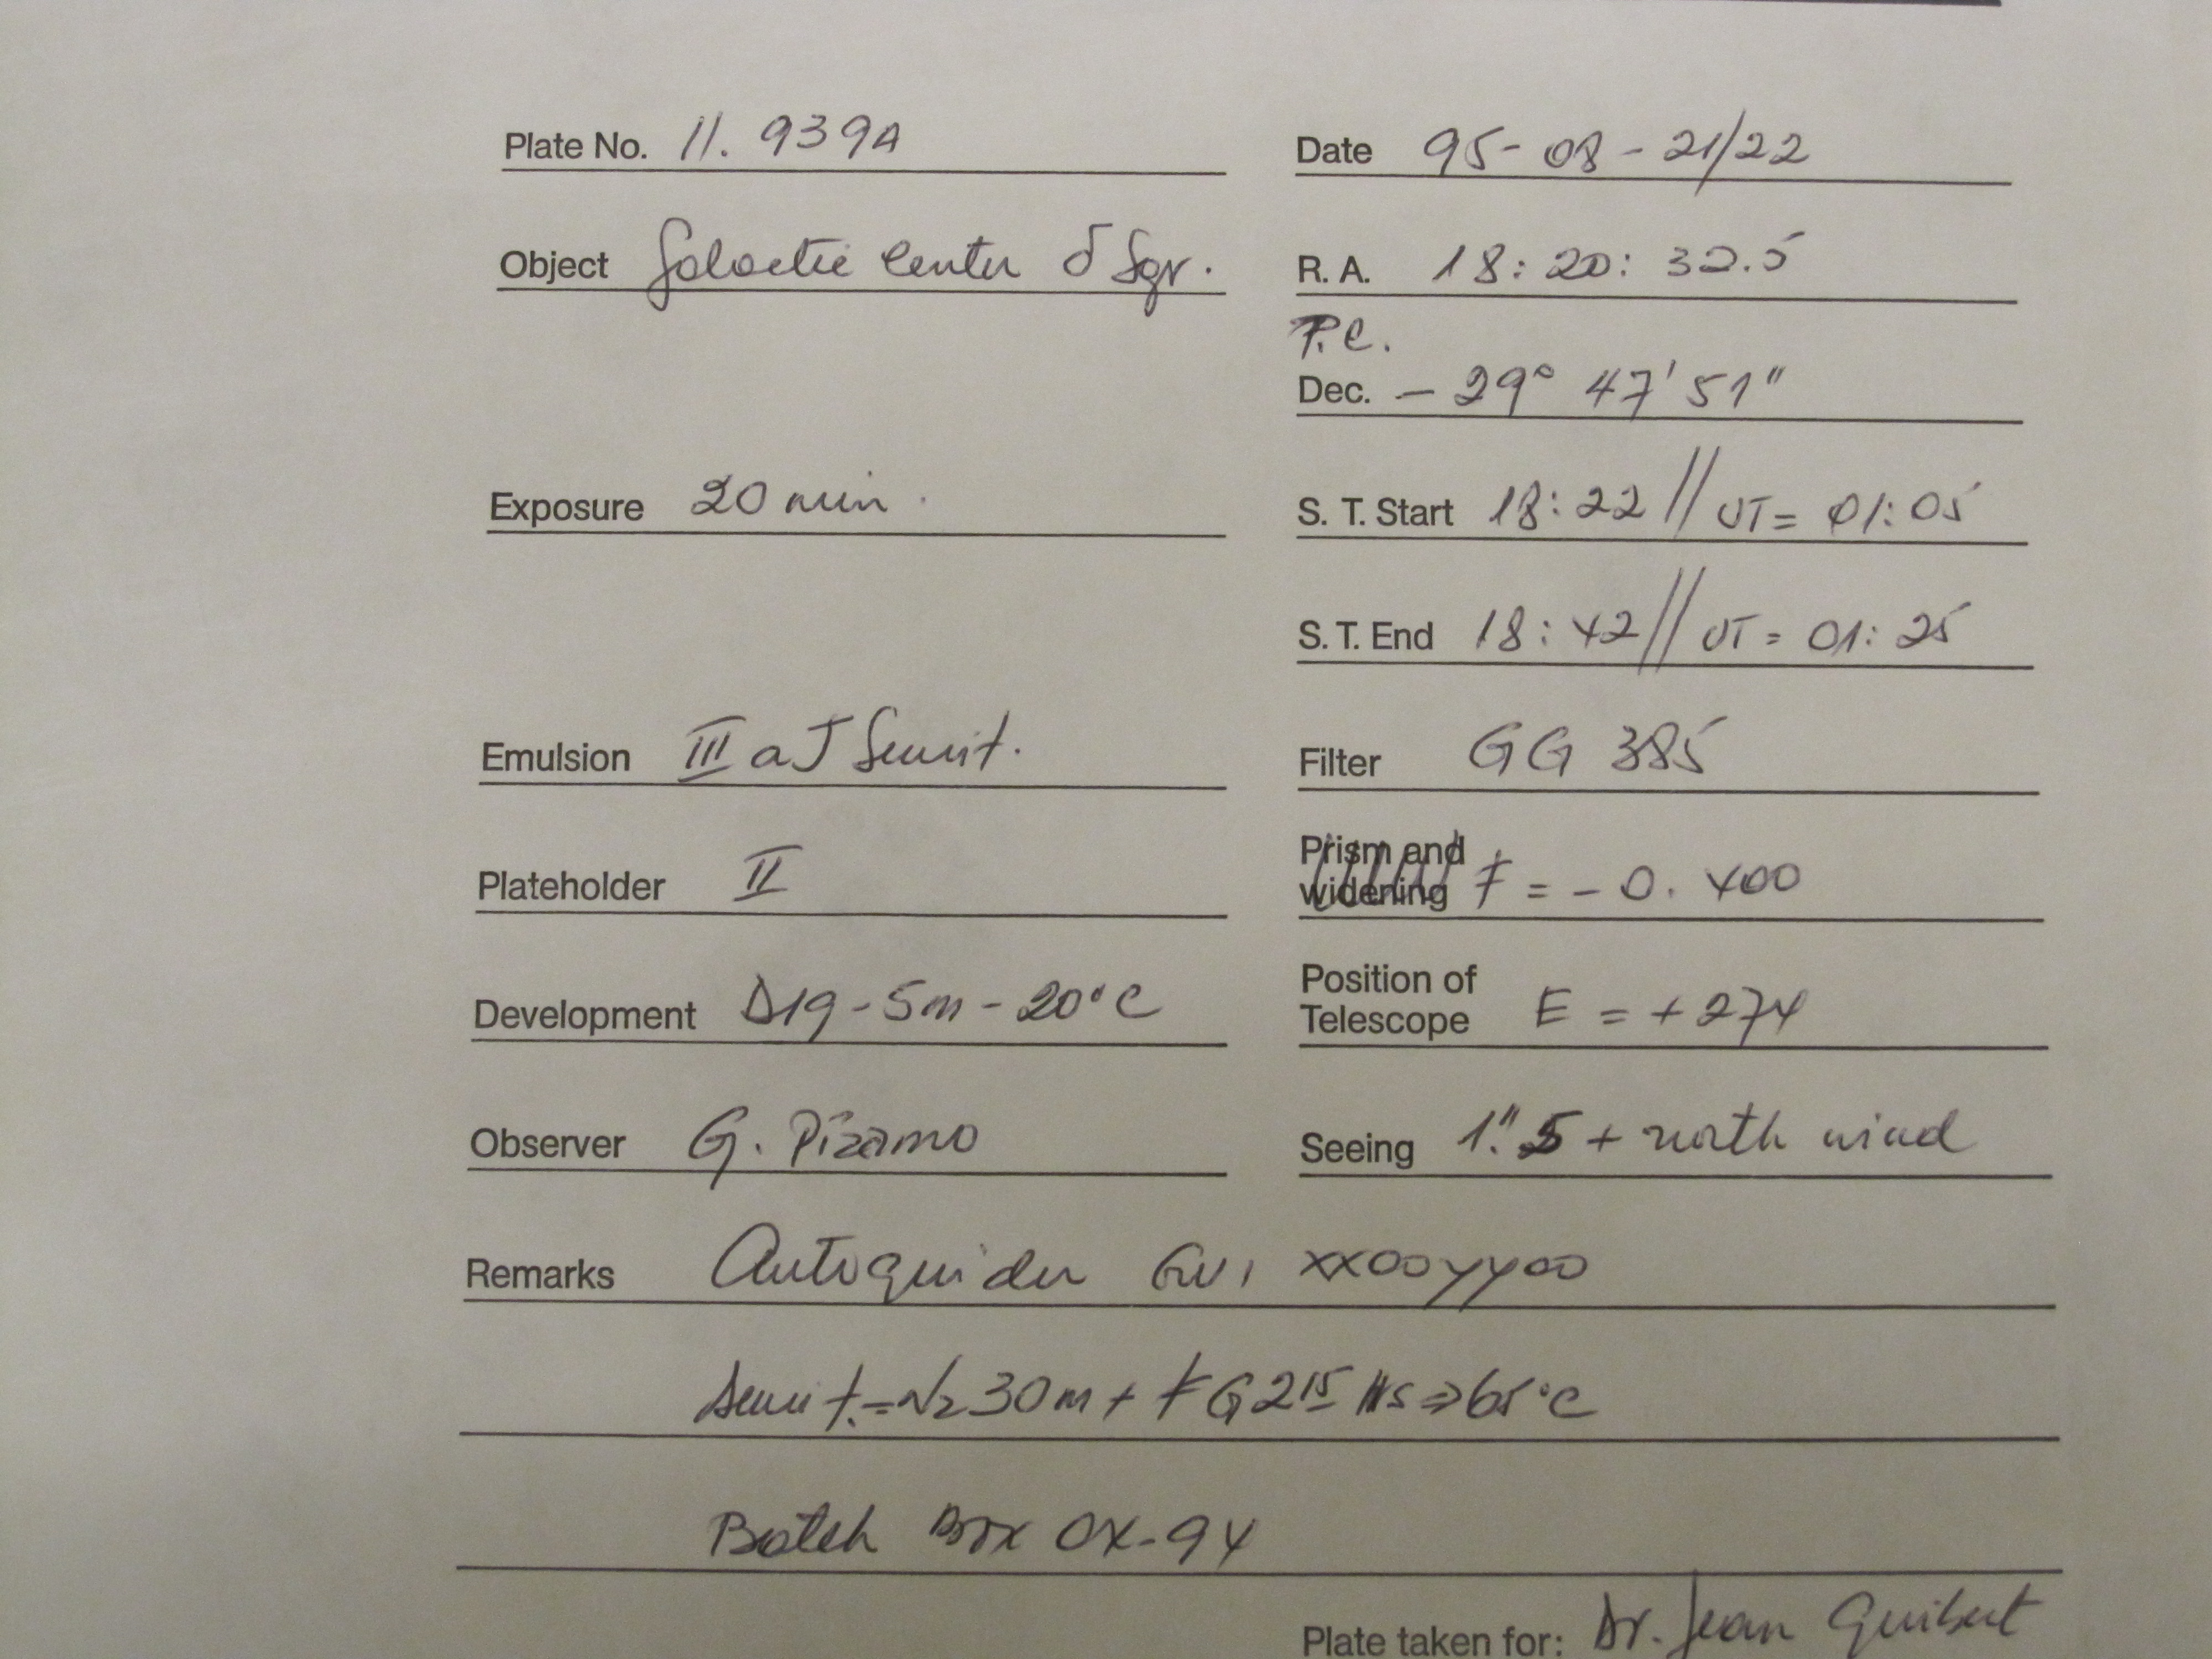 Plate No. 11. 939A
Date 95-08-21/22
Object Galactic Center δ Sgr.
R. A. 18:20:32.5
P.C.
Dec. - 29° 47' 51"
Exposure 20 min.
S. T. Start 18:22 // UT= 01:05
S. T. End 18:42 // UT= 01:25
Emulsion III a J Sensit.
Filter GG 385
Plateholder II
Prism and
widening F = - 0.400
Development D19-5m-20°C
Position of
Telescope E = +274
Observer G. Pizarro
Seeing 1".5 + north wind
Remarks Autoguider XX00YY00
Sensit.=N2 30m + FG2 15 Hs ⇒ 65°C
Batch Box 0X-94
Plate taken for: Dr. Jean Guibert